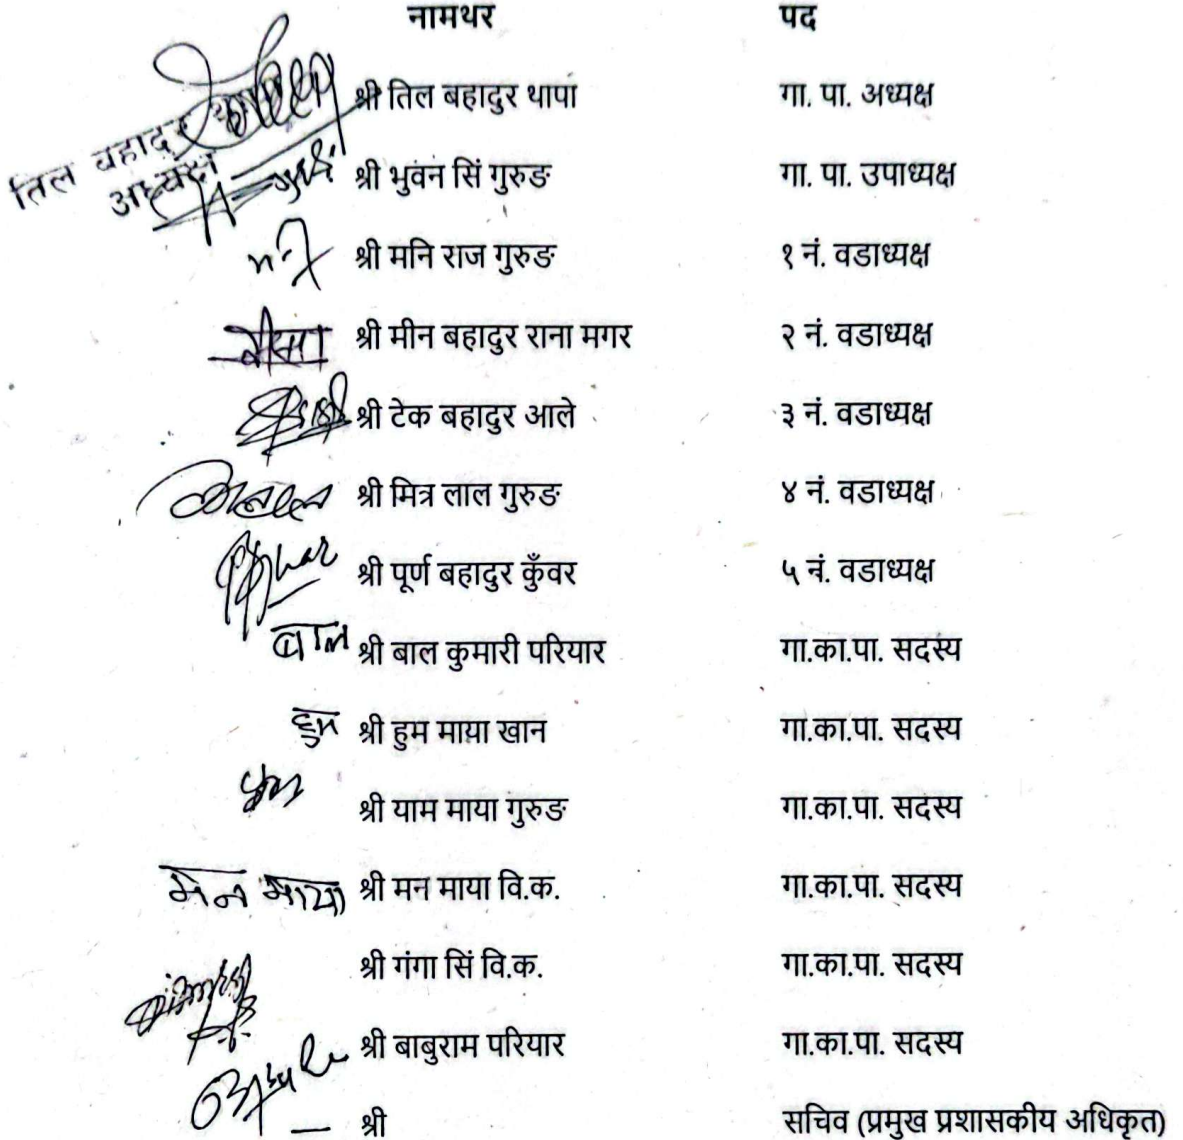 नामथर पद
श्री तिल बहादुर थापा गा. पा. अध्यक्ष
तिल बहादुर
अध्यक्ष
श्री भुवन सिं गुरुङ गा. पा. उपाध्यक्ष
श्री मनि राज गुरुङ १ नं. वडाध्यक्ष
श्री मीन बहादुर राना मगर २ नं. वडाध्यक्ष
श्री टेक बहादुर आले ३ नं. वडाध्यक्ष
श्री मित्र लाल गुरुङ ४ नं. वडाध्यक्ष
श्री पूर्ण बहादुर कुँवर ५ नं. वडाध्यक्ष
बाल श्री बाल कुमारी परियार गा.का.पा. सदस्य
हुम श्री हुम माया खान गा.का.पा. सदस्य
श्री याम माया गुरुङ गा.का.पा. सदस्य
मन माया श्री मन माया वि.क. गा.का.पा. सदस्य
श्री गंगा सिं वि.क. गा.का.पा. सदस्य
श्री बाबुराम परियार गा.का.पा. सदस्य
श्री सचिव (प्रमुख प्रशासकीय अधिकृत)